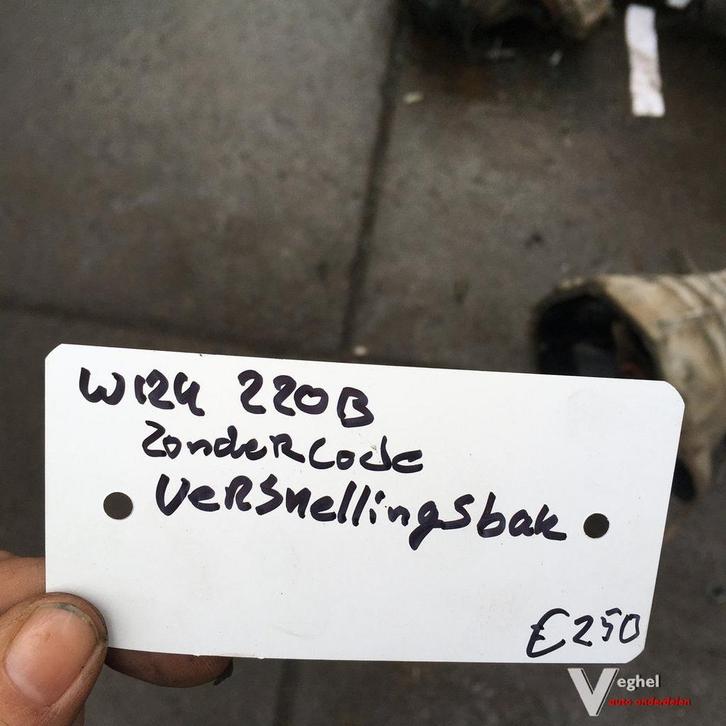 W124 220B
Zonder Code
Versnellingsbak
€250
Veghel
auto onderdelen